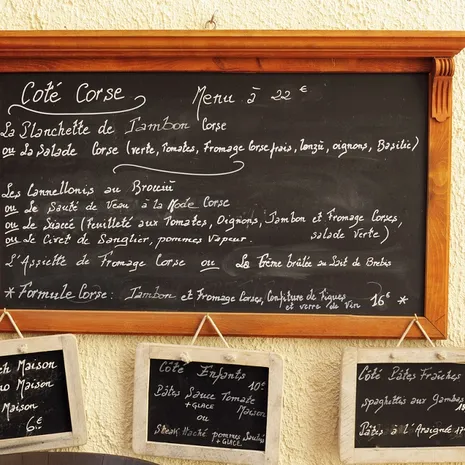 Coté Corse
Menu à 22 €
La Planchette de Jambon Corse
ou La Salade Corse (verte, Tomates, Fromage Corse frais, Lonzu, oignons, Basilic)
Les Cannellonis au Brocciu
ou Le Sauté de Veau à la Mode Corse
ou Le Sciacci (feuilleté aux Tomates, Oignons, Jambon et Fromage Corses,
ou Le Civet de Sanglier, pommes vapeur. salade Verte)
L'Assiette de Fromage Corse ou La Crème brûlée au Lait de Brebis
* Formule Corse : Jambon et Fromage Corses, Confiture de Figues 16€ *
et verre de Vin
Maison
Maison
Maison
6€
Côté Enfants
10€
Pâtes Sauce Tomate
+ GLACE Maison
ou
Steak Haché pommes
+ GLACE
Côté Pâtes Fraîches
spaghettis aux Gambas
Pâtes à l'Araignée